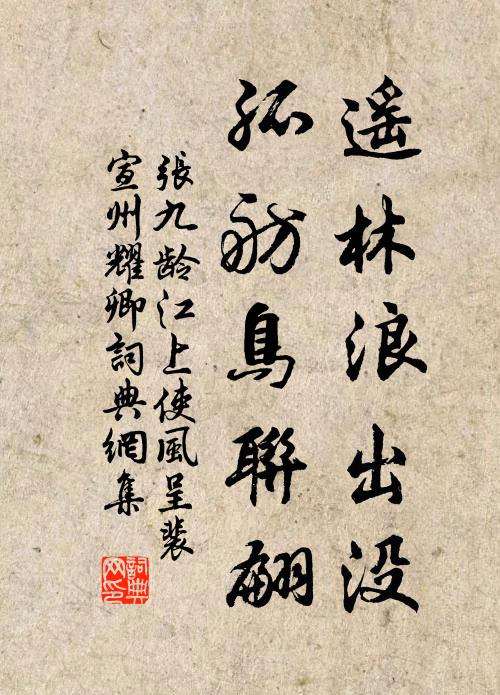 遥林浪出没
孤舫鳥聯翩
張九龄江上使風呈裴
宣州耀卿詞典網集
詞典
网印